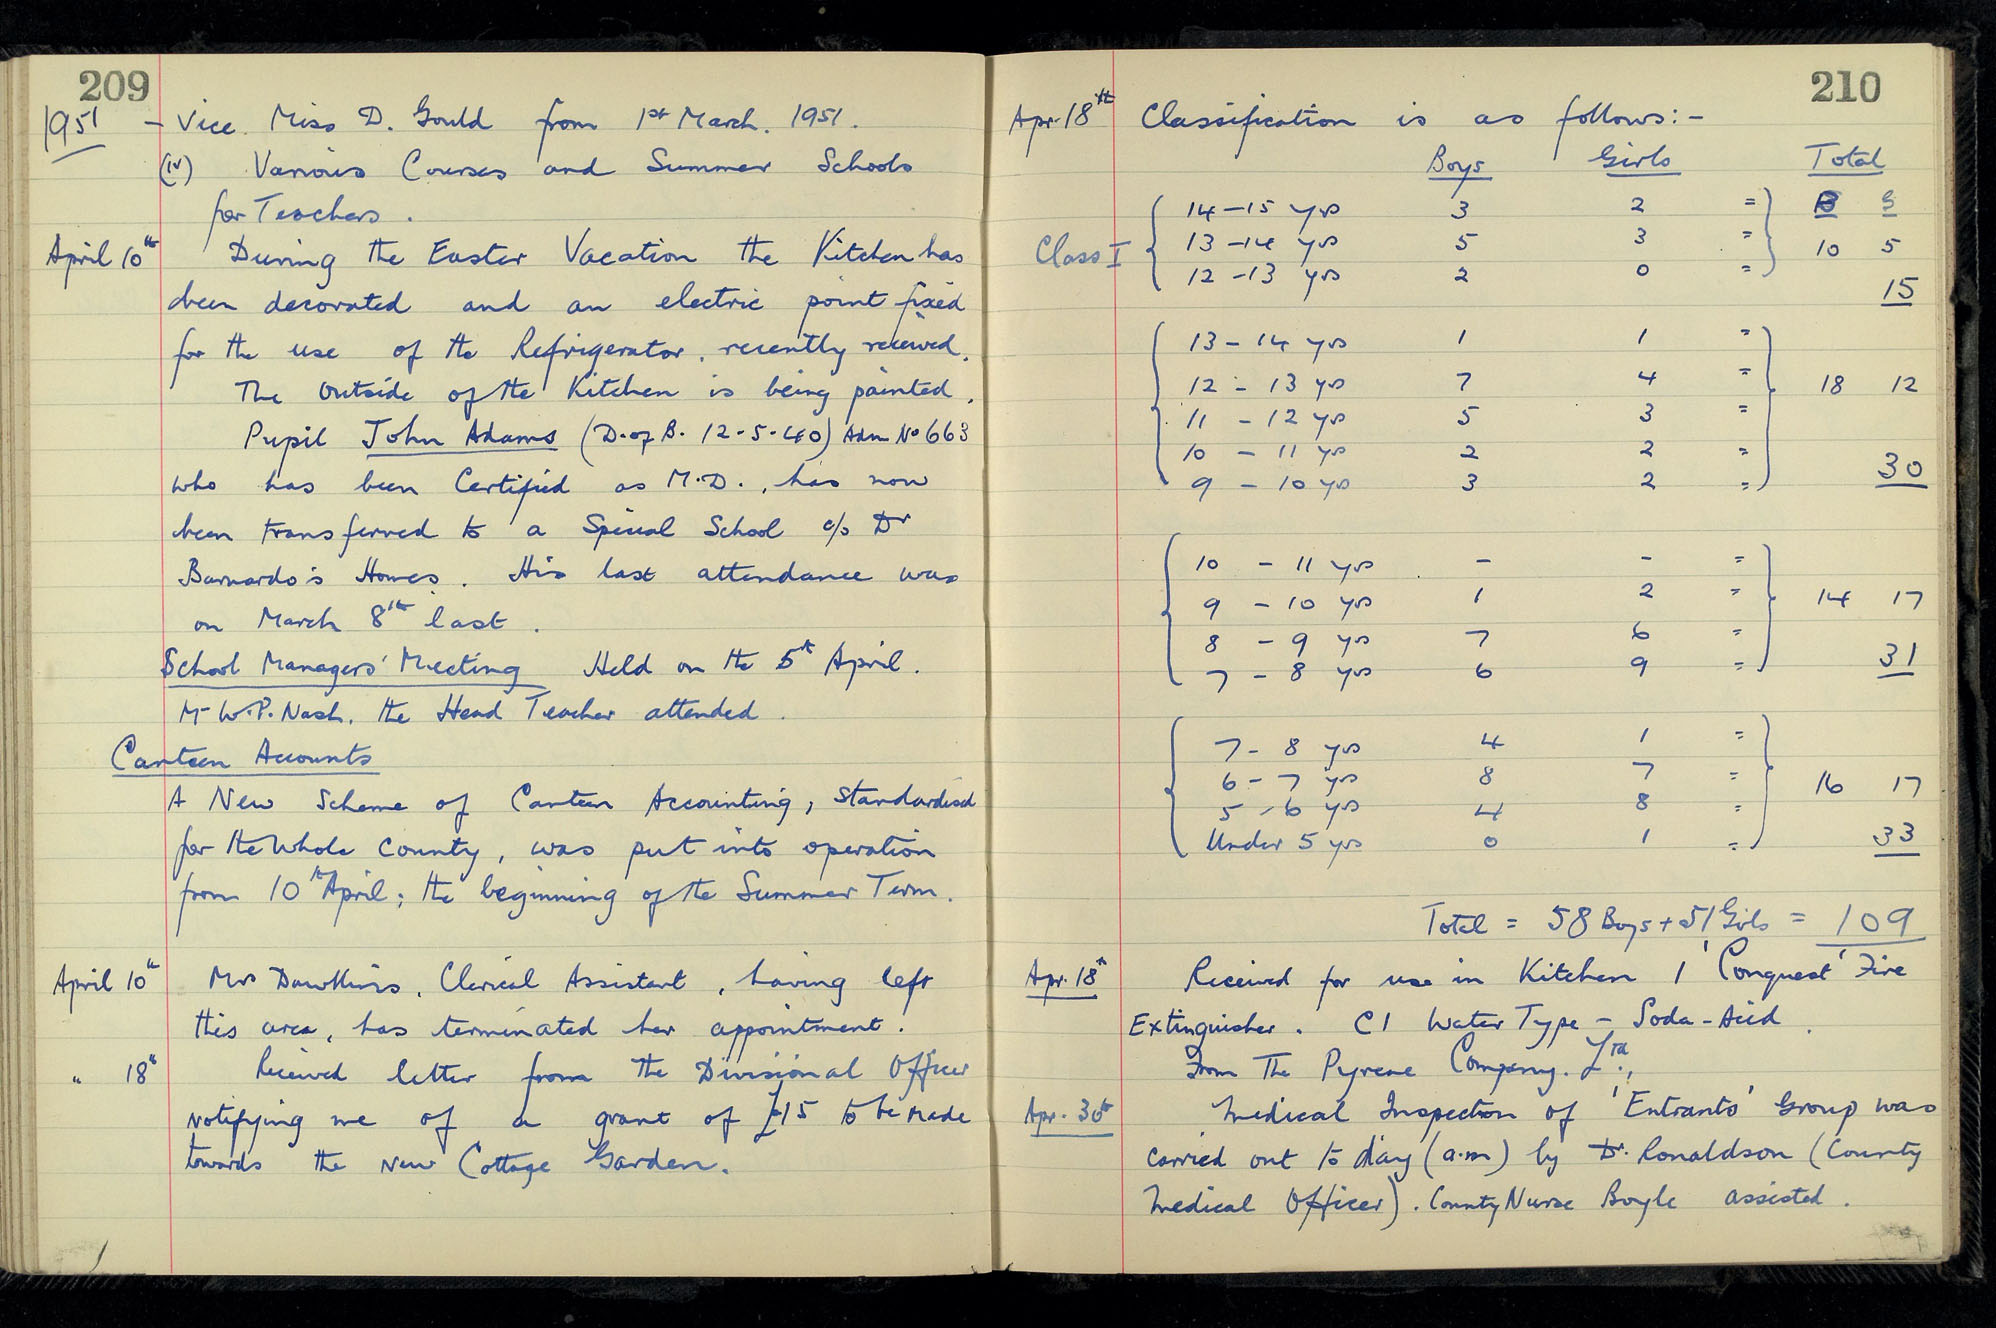 209
1951 - Vice. Miss D. Gould from 1st March. 1951.
(iv) Various Courses and Summer Schools
for Teachers.
April 10th During the Easter Vacation the Kitchen has
been decorated and an electric point fixed
for the use of the Refrigerator, recently received.
The outside of the Kitchen is being painted.
Pupil John Adams (D. of B. 12-5-40) Adm No 663
who has been Certified as M.D., has now
been transferred to a Special School c/o Dr
Barnardo's Homes. His last attendance was
on March 8th last.
School Managers' Meeting Held on the 5th April.
Mr W.P. Nash, the Head Teacher attended.
Canteen Accounts
A New Scheme of Canteen Accounting, standardised
for the whole County, was put into operation
from 10th April; the beginning of the Summer Term.
April 10th Mrs Dawkins, Clerical Assistant, having left
this area, has terminated her appointment.
" 18th Received letter from the Divisional Officer
notifying me of a grant of £15 to be made
towards the New Cottage Garden.
210
Apr. 18th Classification is as follows:-
Boys Girls Total
14-15 yrs 3 2 = 5
Class I 13-14 yrs 5 3 = 10 5
12-13 yrs 2 0 =
15
13-14 yrs 1 1 =
12-13 yrs 7 4 = 18 12
11-12 yrs 5 3 =
10-11 yrs 2 2 =
30
9-10 yrs 3 2 =
10-11 yrs - - =
9-10 yrs 1 2 = 14 17
8-9 yrs 7 6 =
7-8 yrs 6 9 = 31
7-8 yrs 4 1 =
6-7 yrs 8 7 = 16 17
5-6 yrs 4 8 =
Under 5 yrs 0 1 = 33
Total = 58 Boys + 51 Girls = 109
Apr. 18th Received for use in Kitchen 1 'Conquest' Fire
Extinguisher. C1 Water Type - Soda-Acid.
From The Pyrene Company. Ltd.,
Apr. 30th Medical Inspection of 'Entrants' Group was
carried out to day (a.m) by Dr. Ronaldson (County
Medical Officer). County Nurse Boyle assisted.